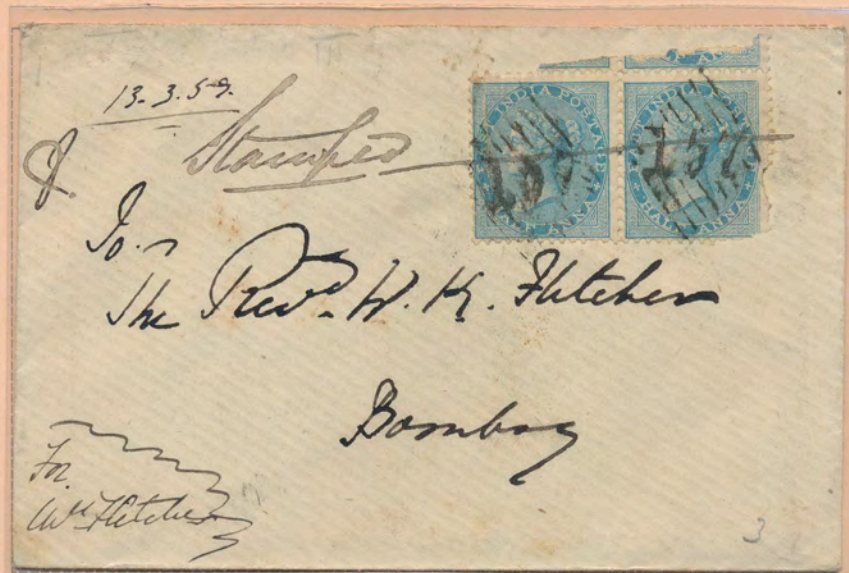 13.3.59.
Stamped
EAST INDIA POSTAGE
HALF ANNA
157
EAST INDIA POSTAGE
HALF ANNA
157
To
The Revd. W. K. Fletcher
Bombay
For
Fletcher
3